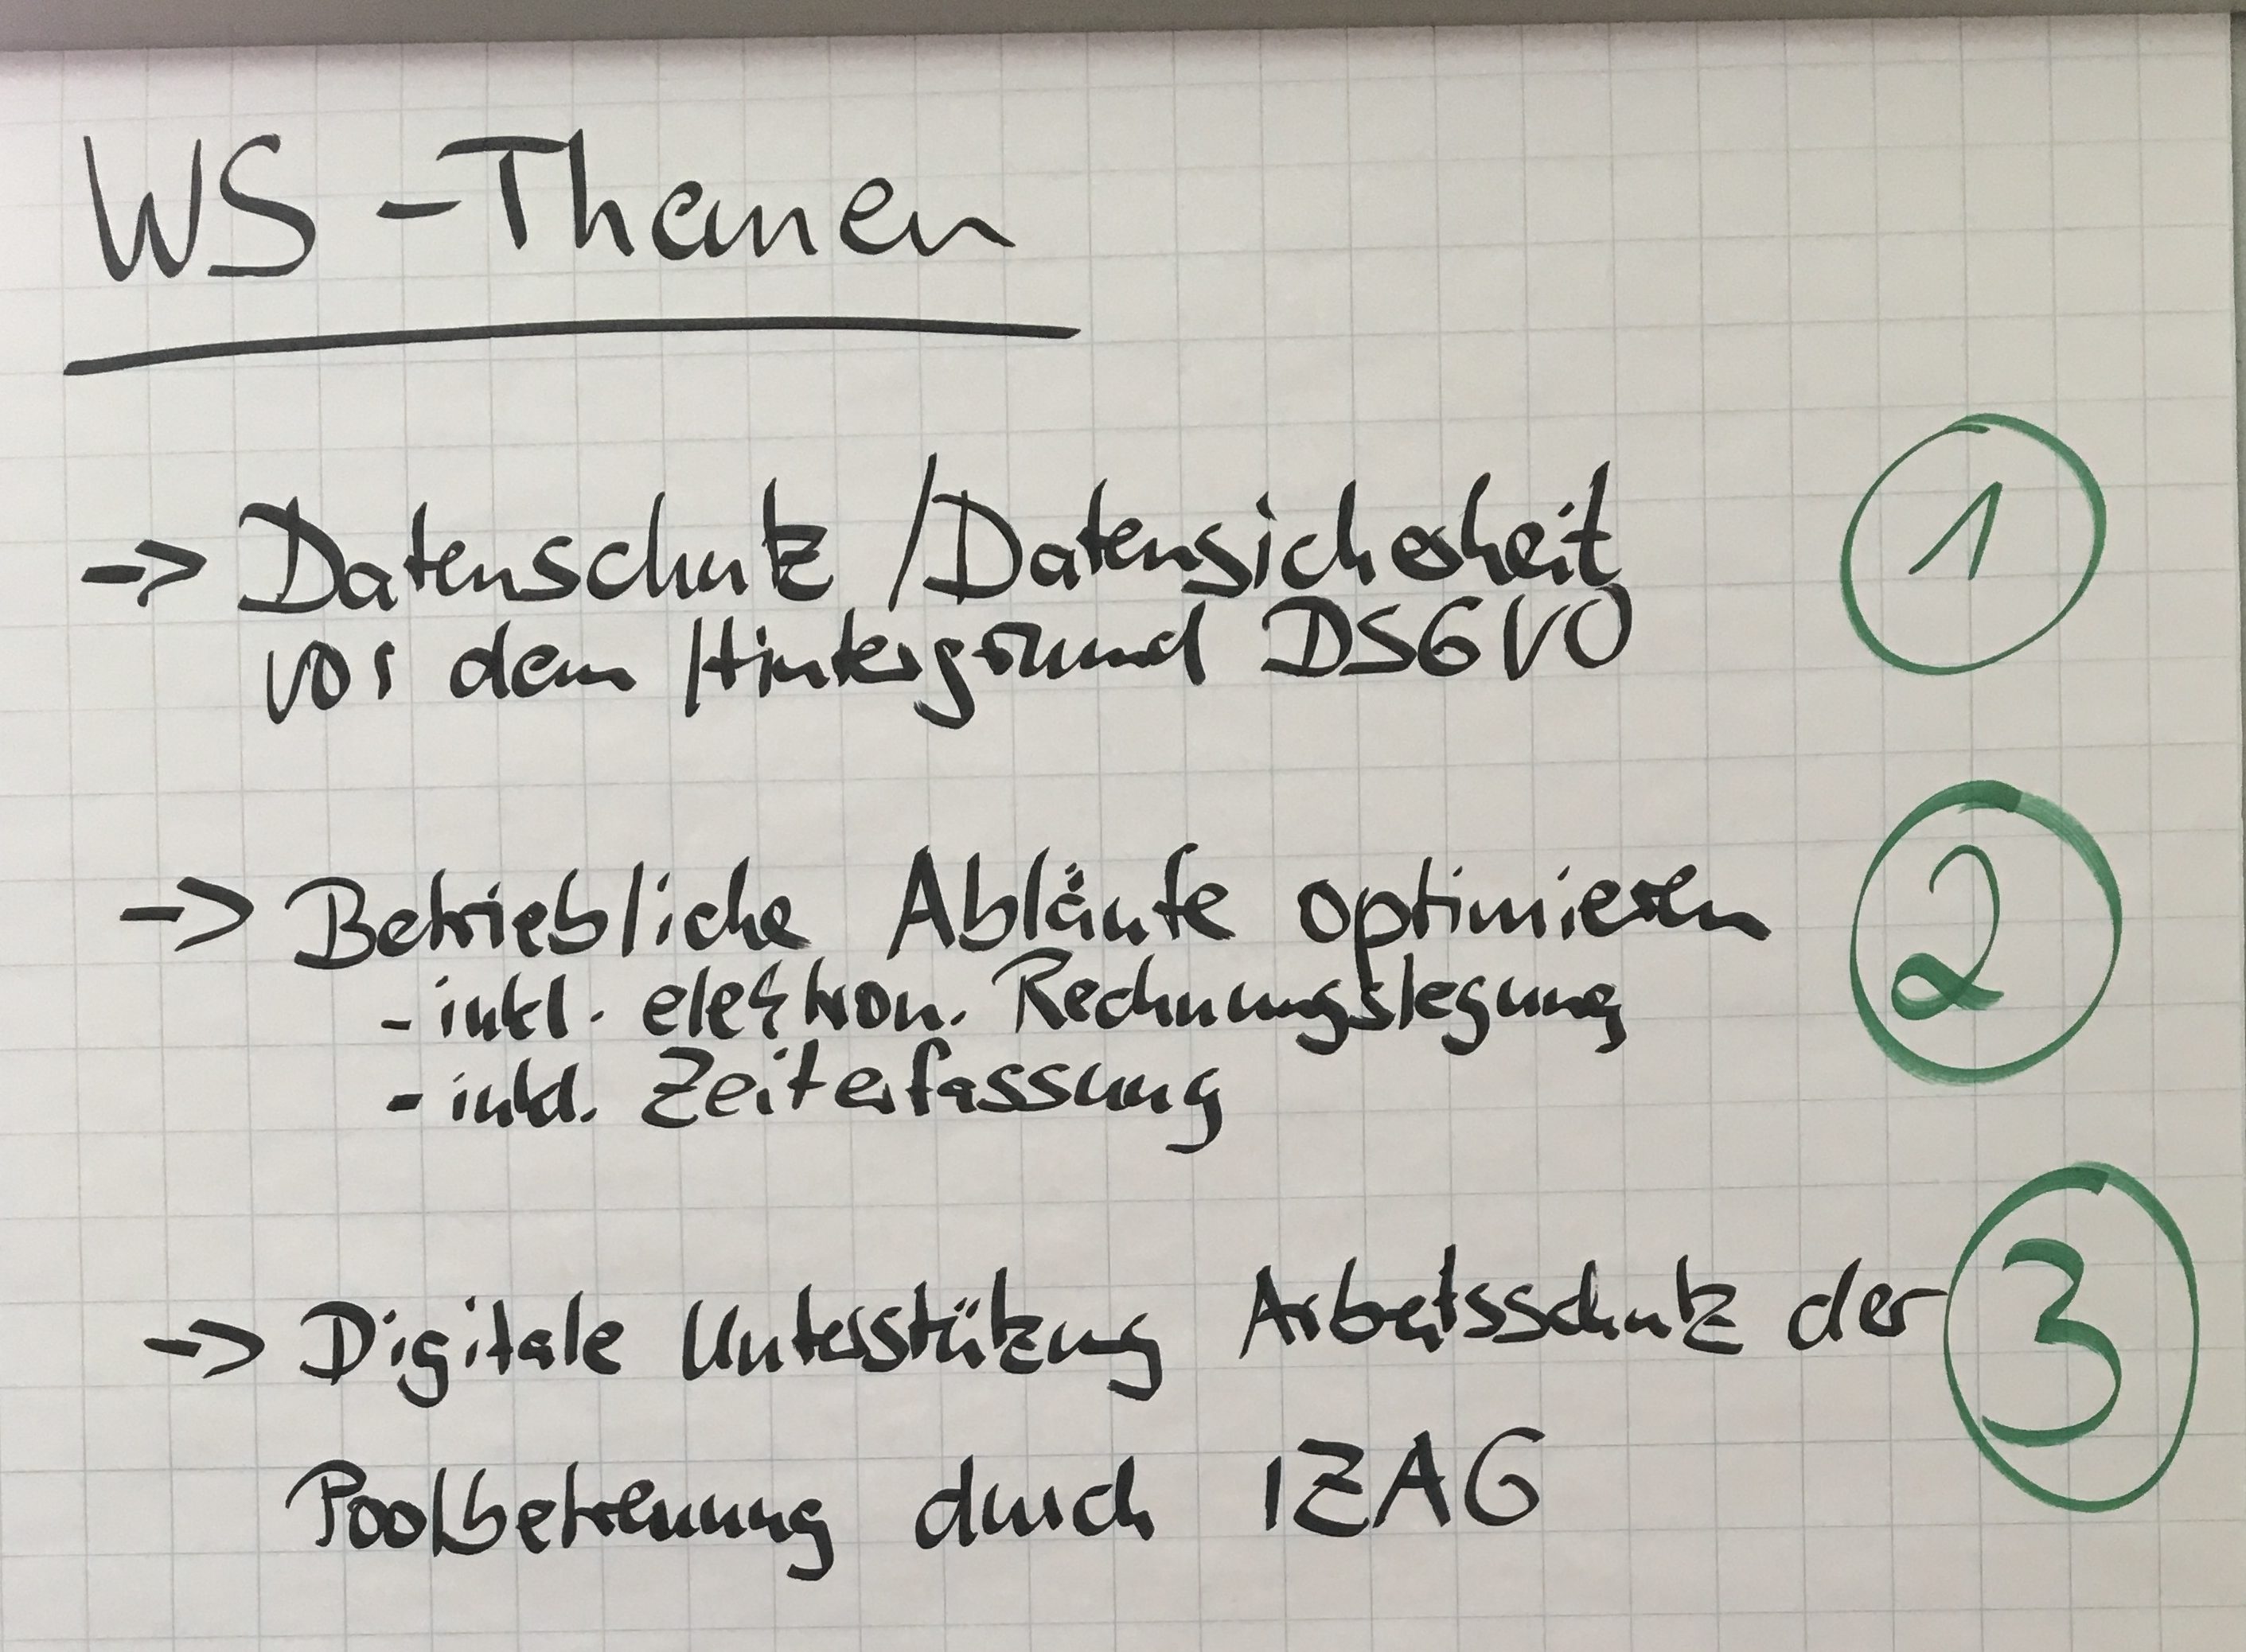 WS-Themen
-> Datenschutz / Datensicherheit 1
vor dem Hintergrund DSGVO
-> Betriebliche Abläufe optimieren 2
- inkl. elektron. Rechnungslegung
- inkl. Zeiterfassung
-> Digitale Unterstützung Arbeitsschutz der 3
Poolbetreuung durch IZAG